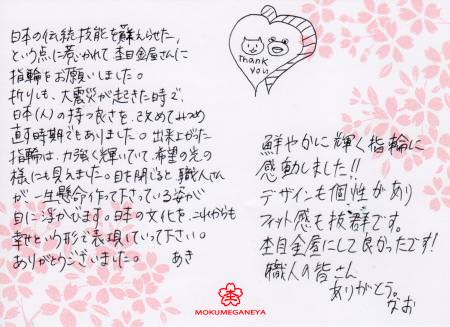 日本の伝統技能を蘇えらせた、
という点に惹かれて杢目金屋さんに
指輪をお願いしました。
折りしも、大震災が起きた時で、
日本(人)の持つ良さを、改めてみつめ
直す時期でもありました。出来上がった
指輪は、力強く輝いていて、希望の光の
様にも見えました。目を閉じると、職人さん
が一生懸命作って下さっている姿が
目に浮かびます。日本の文化を、これからも
幸せという形で表現していって下さい。
ありがとうございました。 あき
Thank
you
鮮やかに輝く指輪に
感動しました!!
デザインも個性があり
フィット感も抜群です。
杢目金屋にして良かったです!
職人の皆さん
ありがとう。
なお
MOKUMEGANEYA